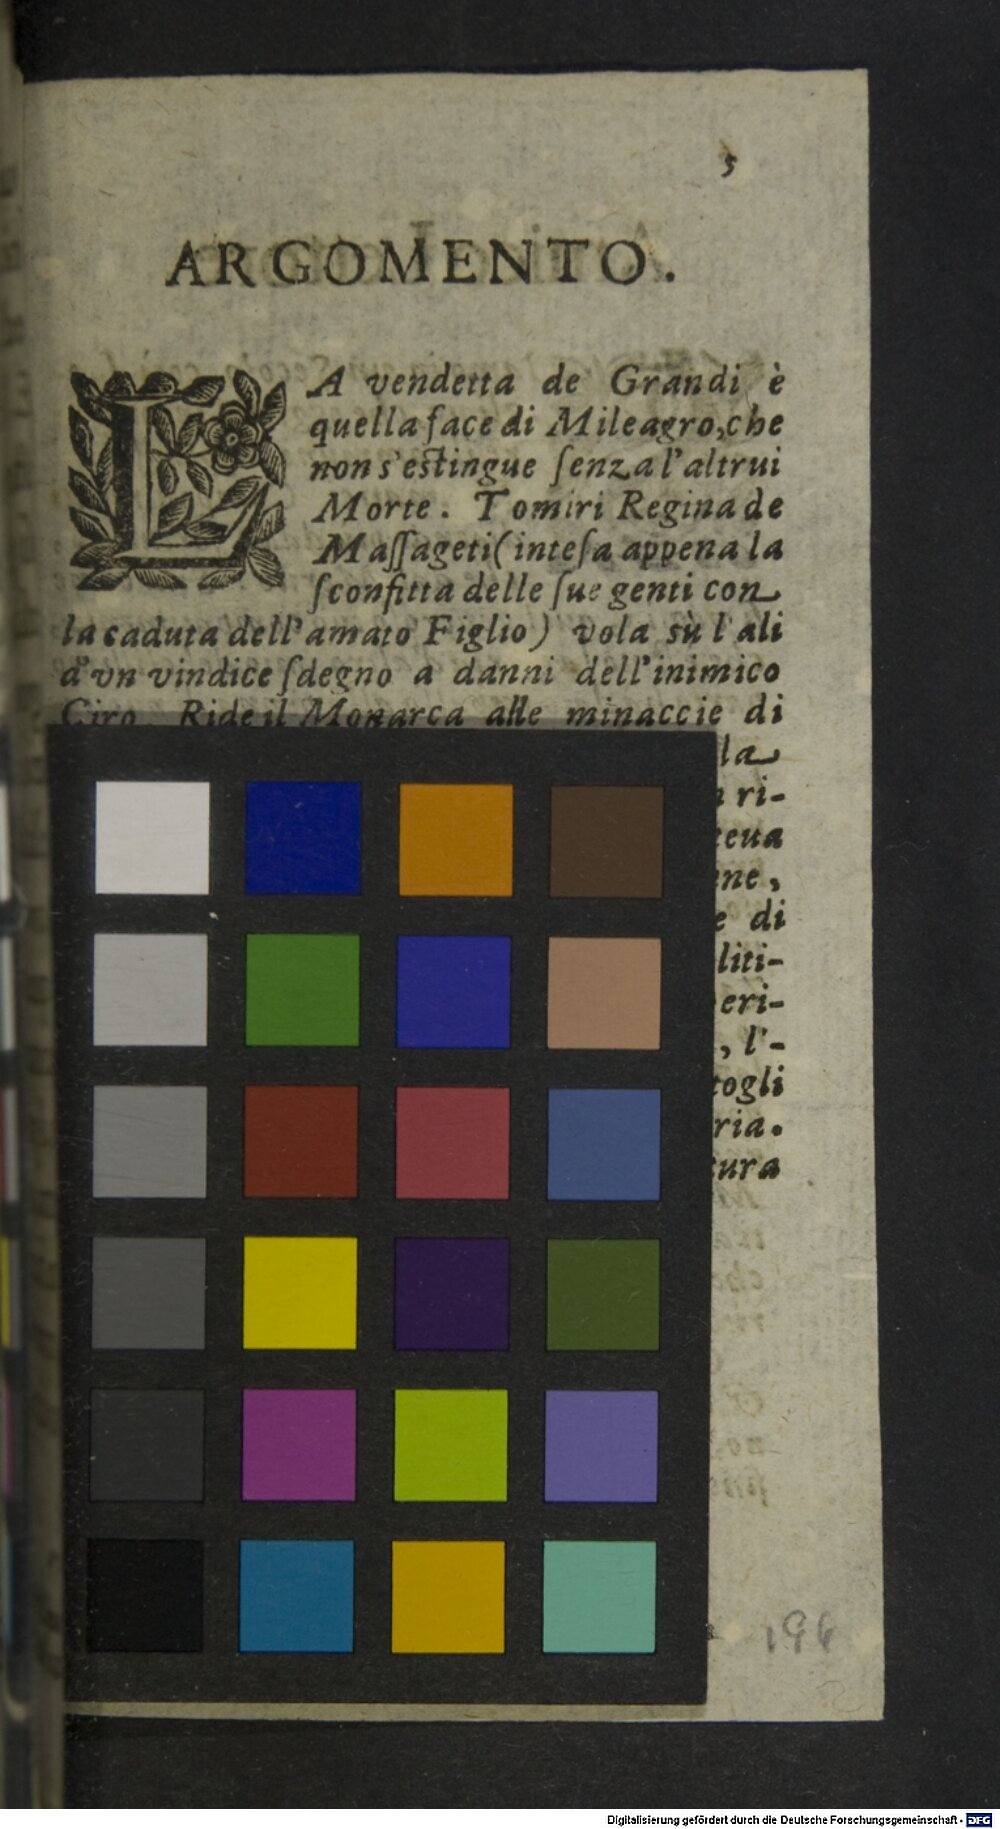 5
ARGOMENTO.
LA vendetta de Grandi è
quella face di Mileagro, che
non s'estingue ſenza l'altrui
Morte. Tomiri Regina de
Maſſageti (inteſa appena la
ſconfitta delle ſue genti con
la caduta dell'amato Figlio) vola sù l'ali
d'vn vindice ſdegno a danni dell'inimico
Ciro. Ride il Monarca alle minaccie di
la
ri-
di
l'-
196
Digitalisierung gefördert durch die Deutsche Forschungsgemeinschaft - DFG